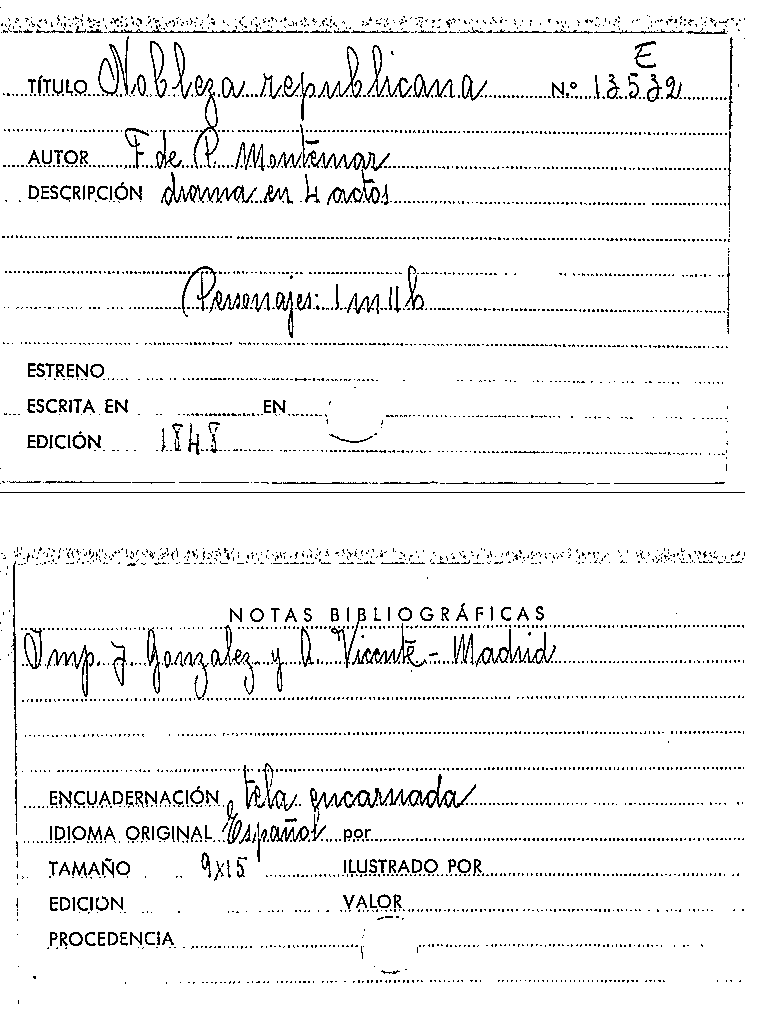 E
TÍTULO Nobleza republicana N.º 13532
AUTOR F de P. Montemar
DESCRIPCIÓN drama en 4 actos
Personajes: 1 m 11 h
ESTRENO
ESCRITA EN EN
EDICIÓN 1848
NOTAS BIBLIOGRÁFICAS
Imp. J. Gonzalez y A. Vicente - Madrid
ENCUADERNACIÓN tela encarnada
IDIOMA ORIGINAL Español por
TAMAÑO 9x15 ILUSTRADO POR
EDICIÓN VALOR
PROCEDENCIA